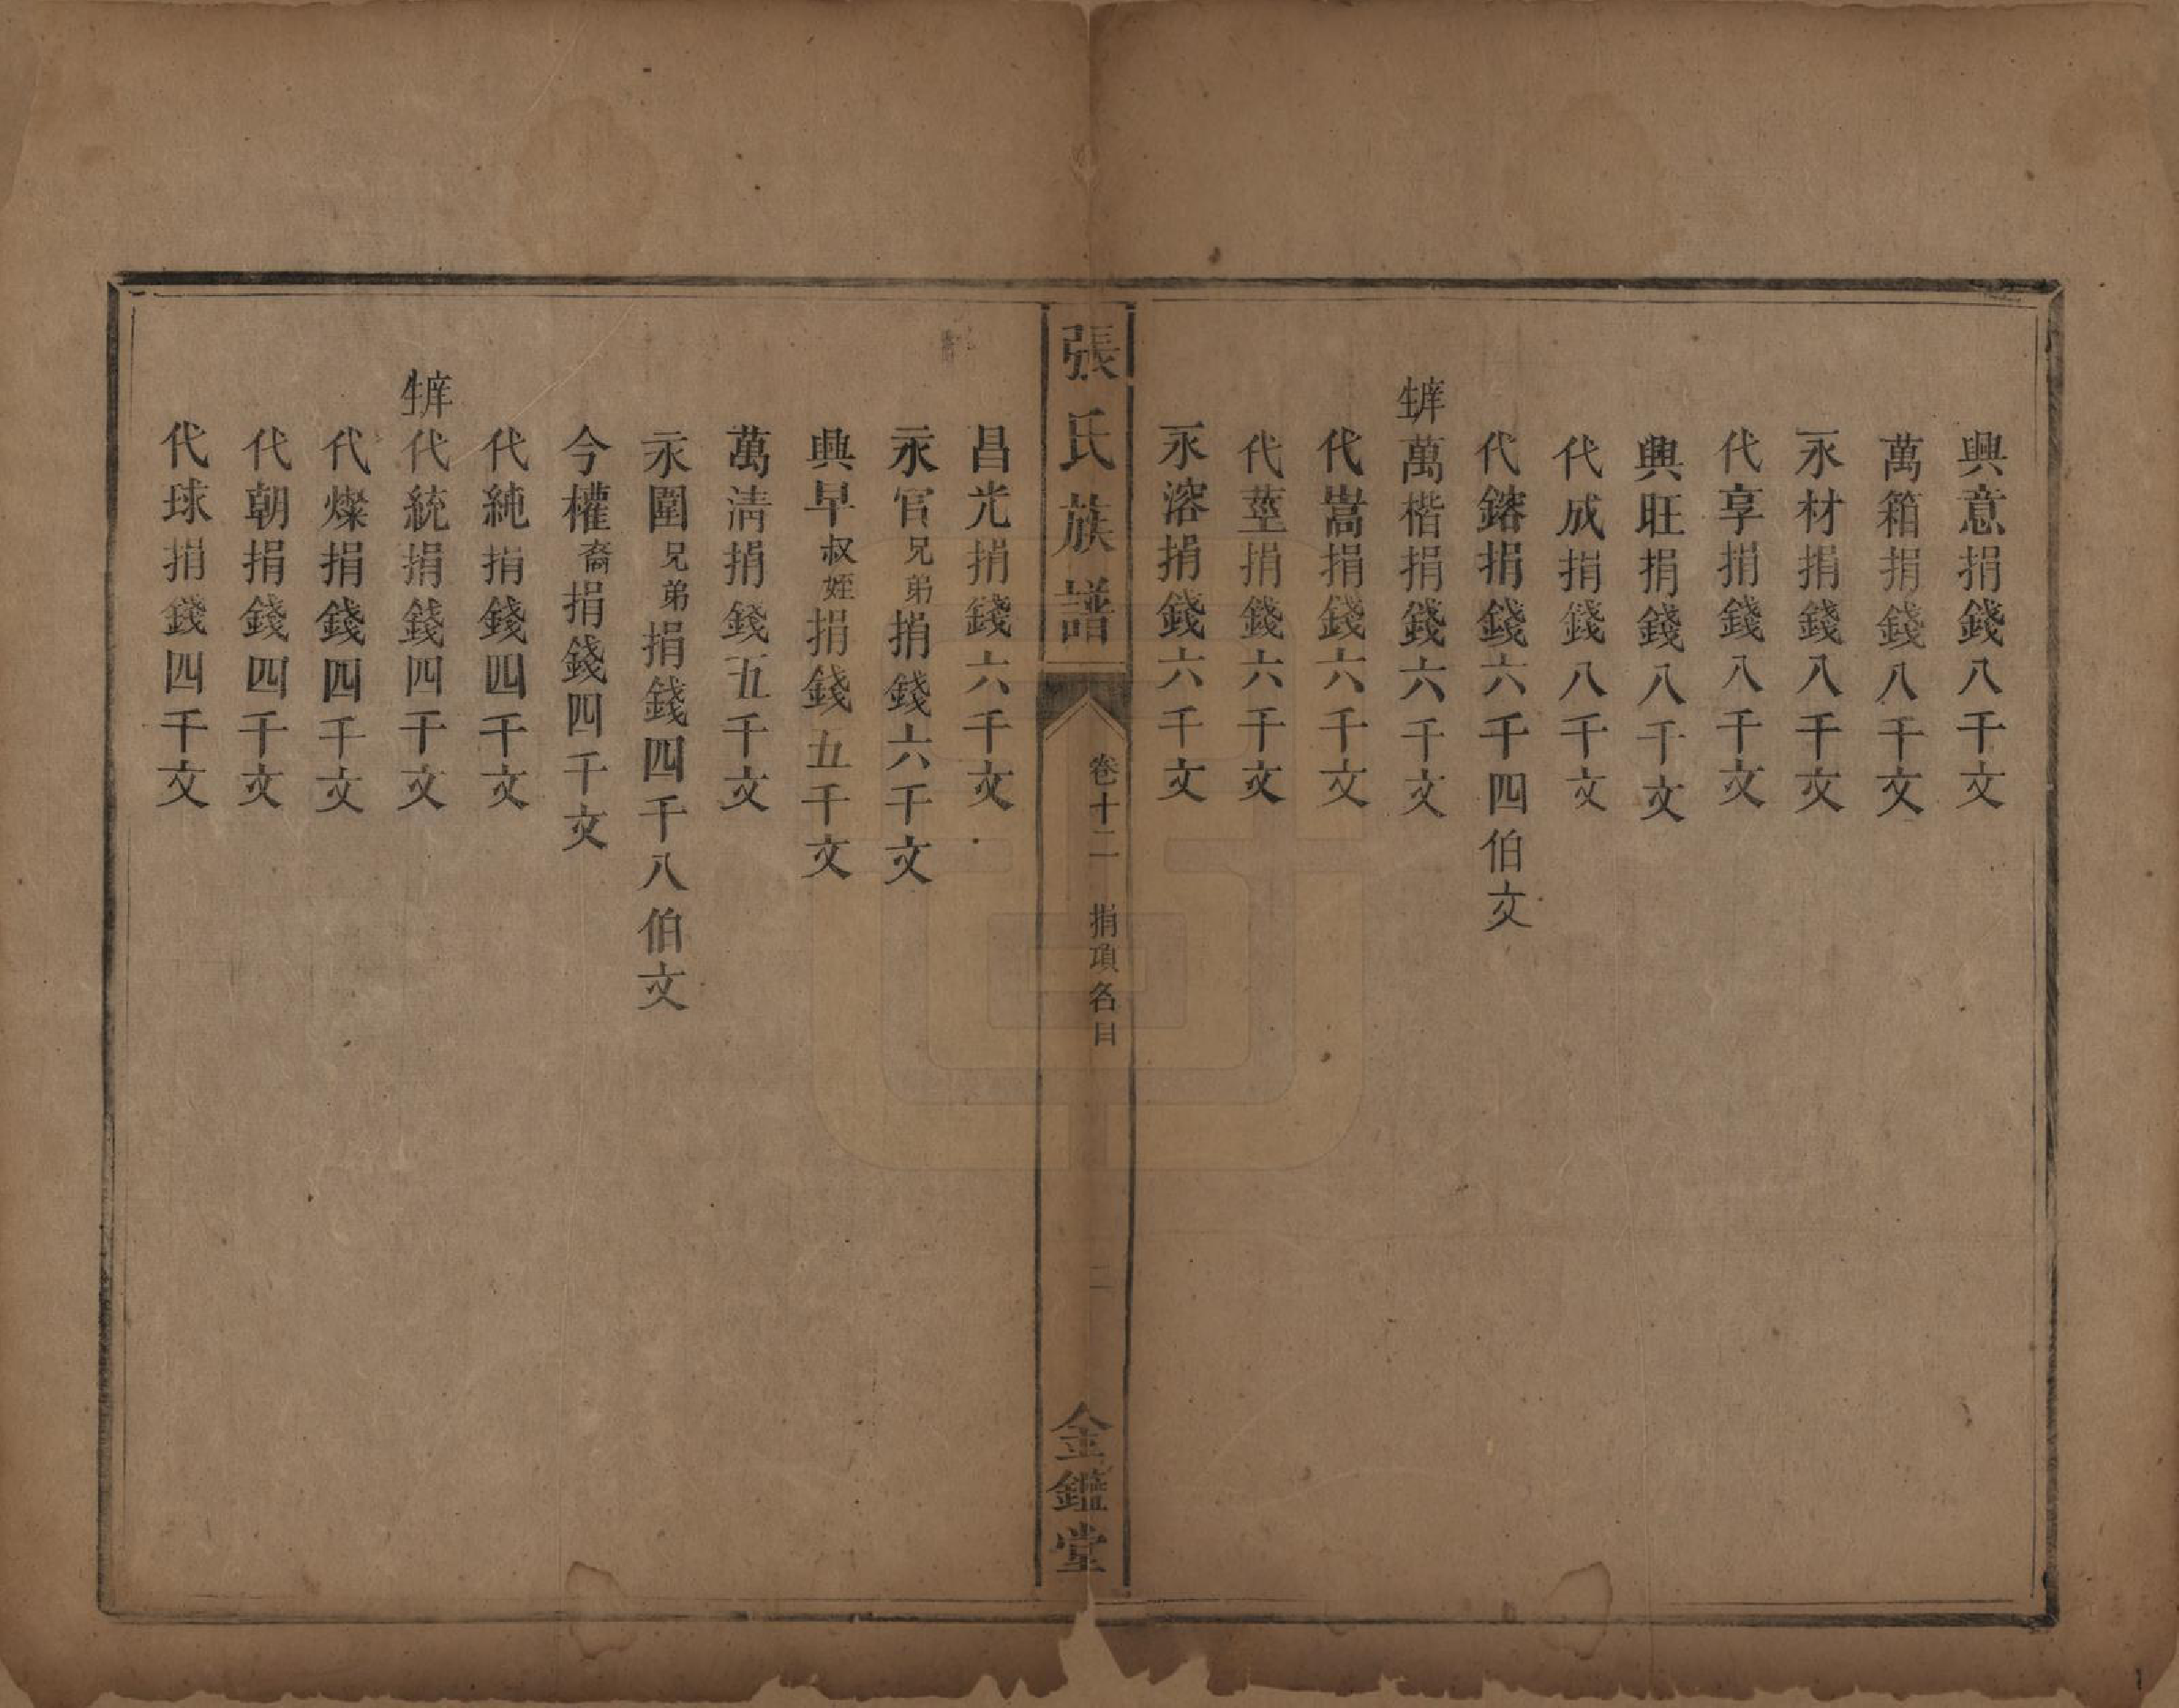 興意捐錢八千文
萬箱捐錢八千文
永材捐錢八千文
代享捐錢八千文
興旺捐錢八千文
代成捐錢八千文
代鎔捐錢六千四伯文
庠生萬楷捐錢六千文
代嵩捐錢六千文
代莖捐錢六千文
永溶捐錢六千文
張氏族譜
卷十二 捐項名目
二
金鑑堂
昌光捐錢六千文
永官兄弟捐錢六千文
興早叔姪捐錢五千文
萬清捐錢五千文
永圍兄弟捐錢四千八伯文
今權裔捐錢四千文
代純捐錢四千文
庠生代統捐錢四千文
代燦捐錢四千文
代朝捐錢四千文
代球捐錢四千文